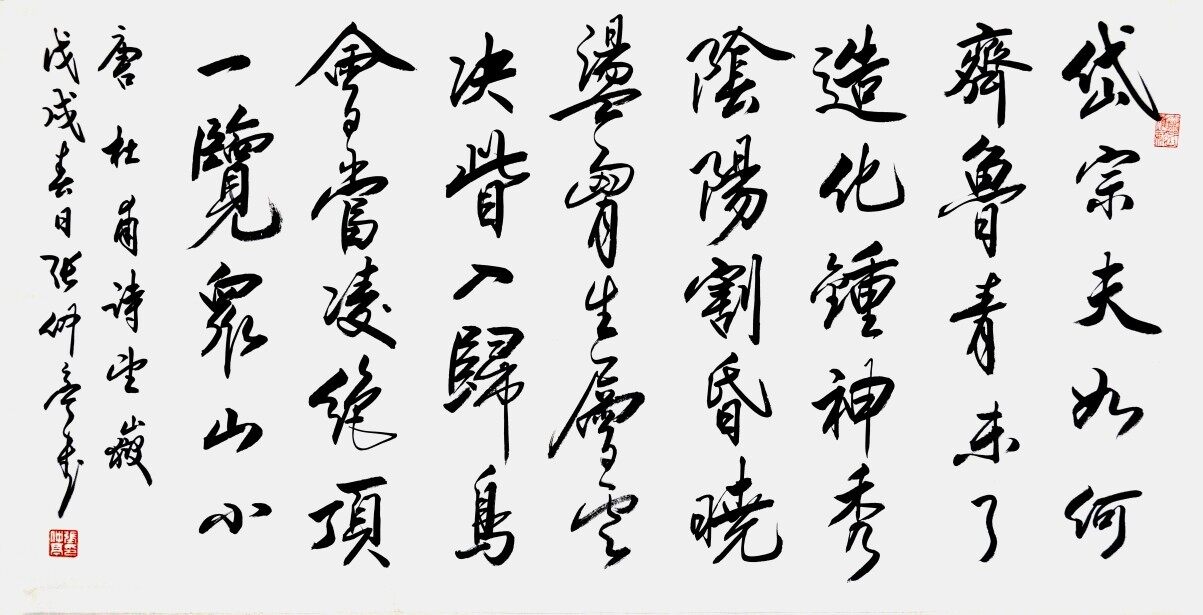 岱宗夫如何
齊魯青未了
造化鍾神秀
陰陽割昏曉
盪胷生層雲
决眥入歸鳥
會當凌絶頂
一覽眾山小
唐杜甫詩望嶽
戊戌春日張仲亭書